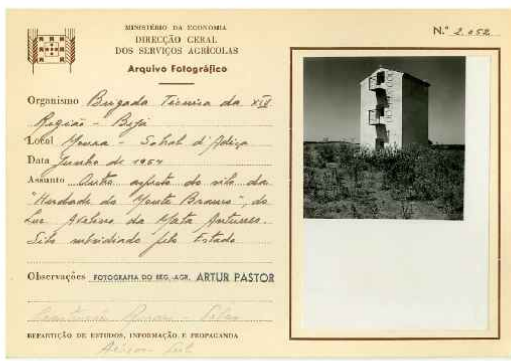 MINISTÉRIO DA ECONOMIA
DIRECÇÃO GERAL
DOS SERVIÇOS AGRÍCOLAS
Arquivo Fotográfico
N.º 2.052
Organismo Brigada Técnica da XIV
Região - Beja
Local Moura - Sobral d'Adiça
Data Junho de 1954
Assunto Outro aspecto do silo da
"Herdade do Monte Branco", de
Luz Avelino da Mata Antunes.
Silo subsidiado pelo Estado
Observações FOTOGRAFIA DO REG.-AGR. ARTUR PASTOR
REPARTIÇÃO DE ESTUDOS, INFORMAÇÃO E PROPAGANDA